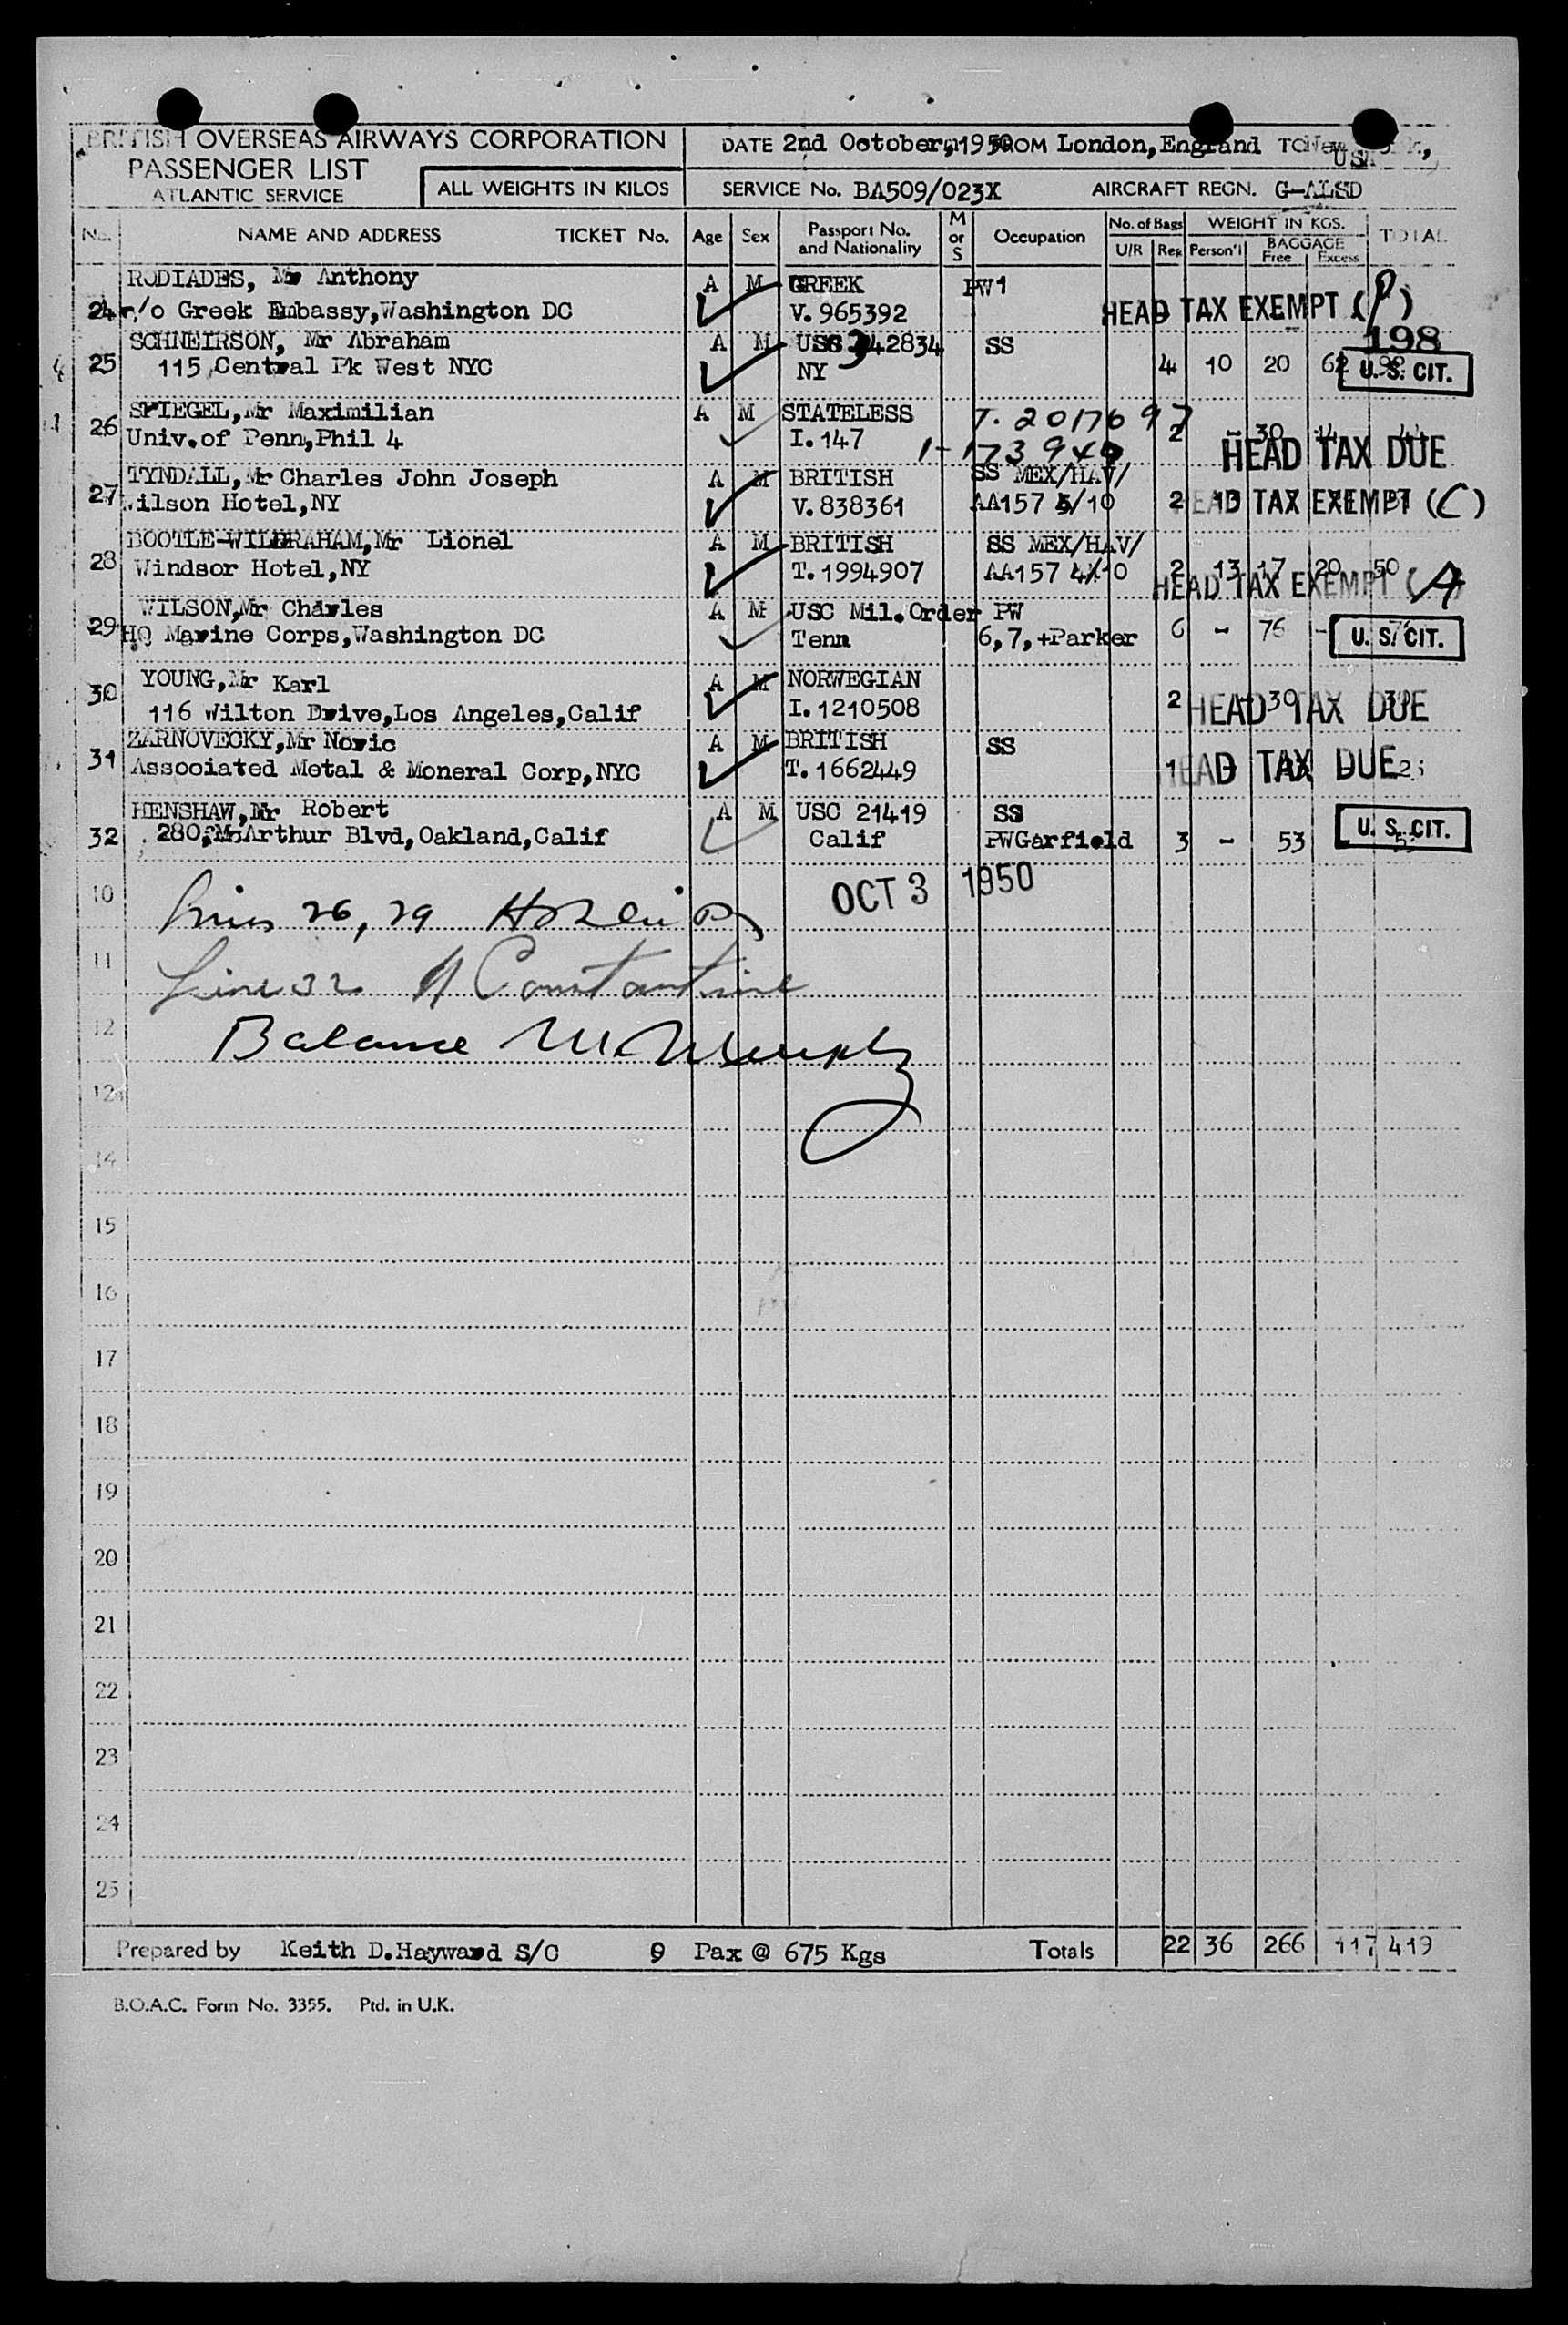 BRITISH OVERSEAS AIRWAYS CORPORATION
PASSENGER LIST
ATLANTIC SERVICE
ALL WEIGHTS IN KILOS
DATE 2nd October, 1950 FROM London, England TO New
USA
SERVICE No. BA509/023X AIRCRAFT REGN. G-ALSD
No. NAME AND ADDRESS TICKET No. Age Sex Passport No. and Nationality M or S Occupation No. of Bags U/R Reg WEIGHT IN KGS. Person'l BAGGAGE Free Excess TOTAL
RODIADES, Mr Anthony A M GREEK PW1
24 c/o Greek Embassy,Washington DC V.965392 HEAD TAX EXEMPT (P)
198
SCHNEIRSON, Mr Abraham A M USC 342834 SS
25 115 Central Pk West NYC NY 4 10 20 62 U. S. CIT.
SPIEGEL,Mr Maximilian A M STATELESS T. 2017697
26 Univ.of Penn,Phil 4 I.147 2 - 30 14 44 HEAD TAX DUE
TYNDALL,Mr Charles John Joseph A M BRITISH SS MEX/HAV/
27 Wilson Hotel,NY V.838361 AA157 5/10 2 13 HEAD TAX EXEMPT (C)
BOOTLE-WILBRAHAM,Mr Lionel A M BRITISH SS MEX/HAV/
28 Windsor Hotel,NY T.1994907 AA157 4/10 2 13 17 20 50 HEAD TAX EXEMPT (A)
WILSON,Mr Charles A M USC Mil.Order PW
29 HQ Marine Corps,Washington DC Tenn 6,7,+Parker 6 - 76 - U. S. CIT.
YOUNG,Mr Karl A M NORWEGIAN
30 116 Wilton Drive,Los Angeles,Calif I.1210508 2 30 30 HEAD TAX DUE
ZARNOVECKY,Mr Novic A M BRITISH SS
31 Associated Metal & Moneral Corp,NYC T.1662449 1 HEAD TAX DUE
HENSHAW,Mr Robert A M USC 21419 SS
32 280 McArthur Blvd,Oakland,Calif Calif PWGarfield 3 - 53 U. S. CIT.
10 OCT 3 1950
26, 29
11 Line 32 A Constantine
12 Balance
12a
14
15
16
17
18
19
20
21
22
23
24
25
Prepared by Keith D.Hayward S/C 9 Pax @ 675 Kgs Totals 22 36 266 117 419
B.O.A.C. Form No. 3355. Ptd. in U.K.